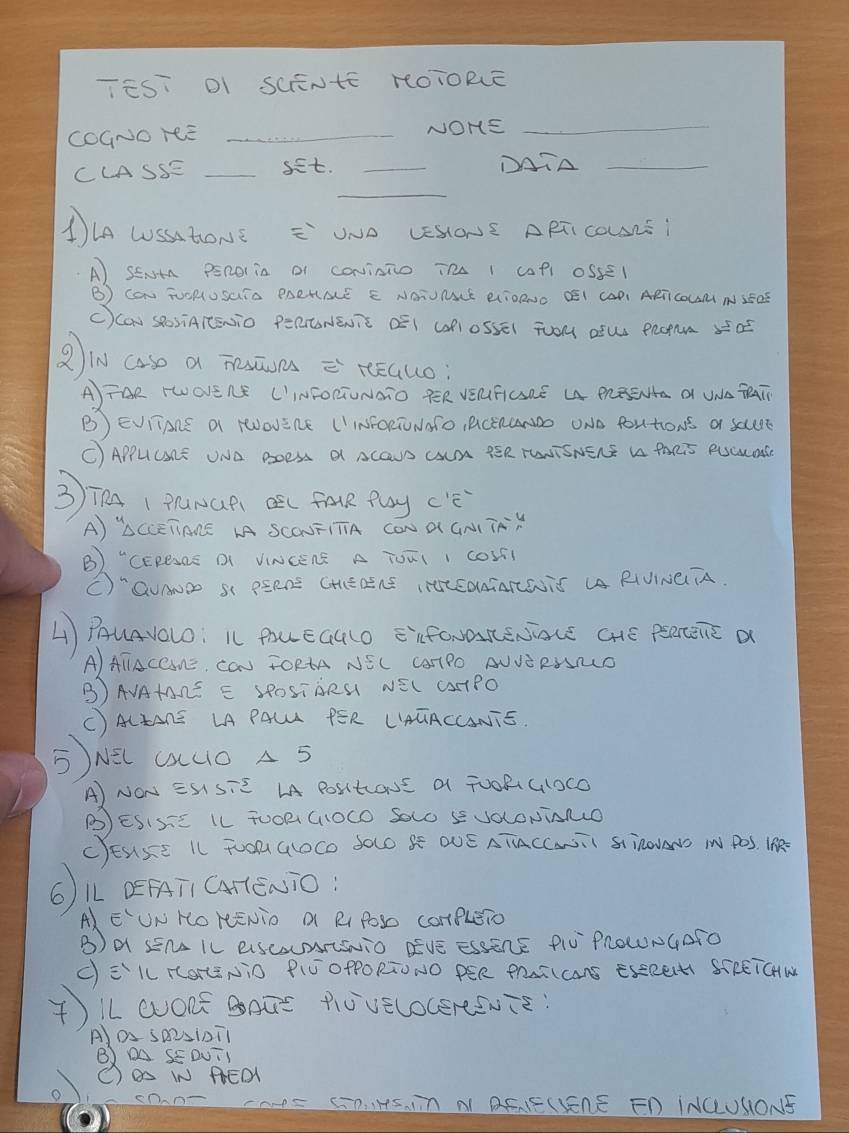 TEST DI SCIENZE MOTORIE
COGNOME ___________ NOME ___________
CLASSE ____ SEZ. ____ DATA ______
1) LA LUSSAZIONE E' UNA LESIONE ARTICOLARE:
A) SENZA PERDITA DI CONTATTO TRA I CAPI OSSEI
B) CON FUORIUSCITA PARZIALE E NATURALE RITORNO DEI CAPI ARTICOLARI IN SEDE
C) CON SPOSTAMENTO PERMANENTE DEI CAPI OSSEI FUORI DELLA PROPRIA SEDE
2) IN CASO DI FRATTURA E' MEGLIO:
A) FAR MUOVERE L'INFORTUNATO PER VERIFICARE LA PRESENZA DI UNA FRATT
B) EVITARE DI MUOVERE L'INFORTUNATO, RICERCANDO UNA POSIZIONE DI
C) APPLICARE UNA BORSA DI ACQUA CALDA PER MANTENERE LA PARTE RISCALDATA
3) TRA I PRINCIPI DEL FAIR PLAY C'E'
A) "ACCETTARE LA SCONFITTA CON DIGNITA'"
B) "CERCARE DI VINCERE A TUTTI I COSTI
C) "QUANDO SI PERDE CHIEDERE IMMEDIATAMENTE LA RIVINCITA.
4) PALLAVOLO: IL PALLEGGIO E' FONDAMENTALE CHE PERMETTE DI
A) ATTACCARE CON FORZA NEL CAMPO AVVERSARIO
B) AVANZARE E SPOSTARSI NEL CAMPO
C) ALZARE LA PALLA PER L'ATTACCANTE.
5) NEL CALCIO A 5
A) NON ESISTE LA POSIZIONE DI FUORIGIOCO
B) ESISTE IL FUORIGIOCO SOLO SE VOLONTARIO
C) ESISTE IL FUORIGIOCO SOLO SE DUE ATTACCANTI SI TROVANO IN POS. IRRE
6) IL DEFATICAMENTO:
A) E' UN MOMENTO DI RIPOSO COMPLETO
B) DI SERA IL RISCALDAMENTO DEVE ESSERE PIU' PROLUNGATO
C) E' IL MOMENTO PIU' OPPORTUNO PER PRATICARE ESERCIZI STRETCHIN
7) IL CUORE BATTE PIU' VELOCEMENTE:
A) DA SDRAIATI
B) DA SEDUTI
C) DA IN PIEDI
COME DI BENESSERE ED INCLUSIONE